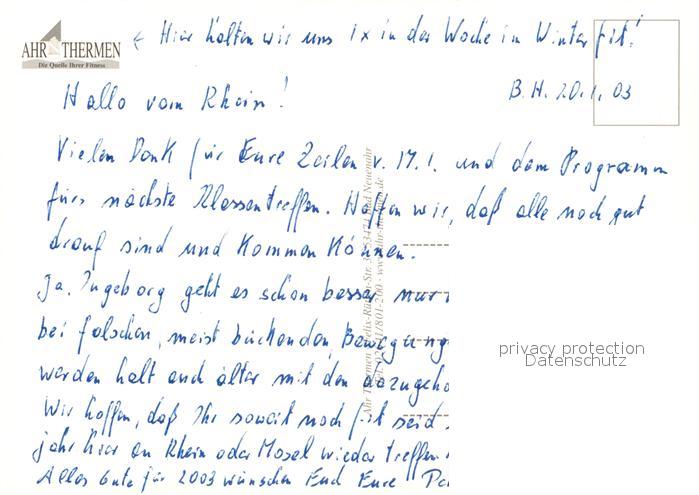 AHR THERMEN
Die Quelle Ihrer Fitness
← Hier halten wir uns 1x in der Woche im Winter fit!
Hallo vom Rhein!
B.H. 20.1.03
Vielen Dank für Eure Zeilen v. 17.1. und dem Programm
fürs nächste Klassentreffen. Hoffen wir, daß alle noch gut
drauf sind und kommen können.
Ja, Ingeborg geht es schon besser, nur
bei falschen, meist bückenden Bewegung
werden halt auch älter mit den dazugehö
Wir hoffen, daß Ihr soweit noch fit seid
jahr hier an Rhein oder Mosel wieder treffen
Alles Gute für 2003 wünschen Euch Eure
Ahr Thermen
Bad Neuenahr
privacy protection
Datenschutz